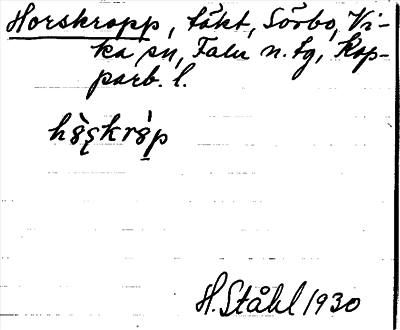 Horskropp, täkt, Sörbo, Vi-
ka sn, Falu n. tg, Kop-
parb. l.
H. Ståhl 1930